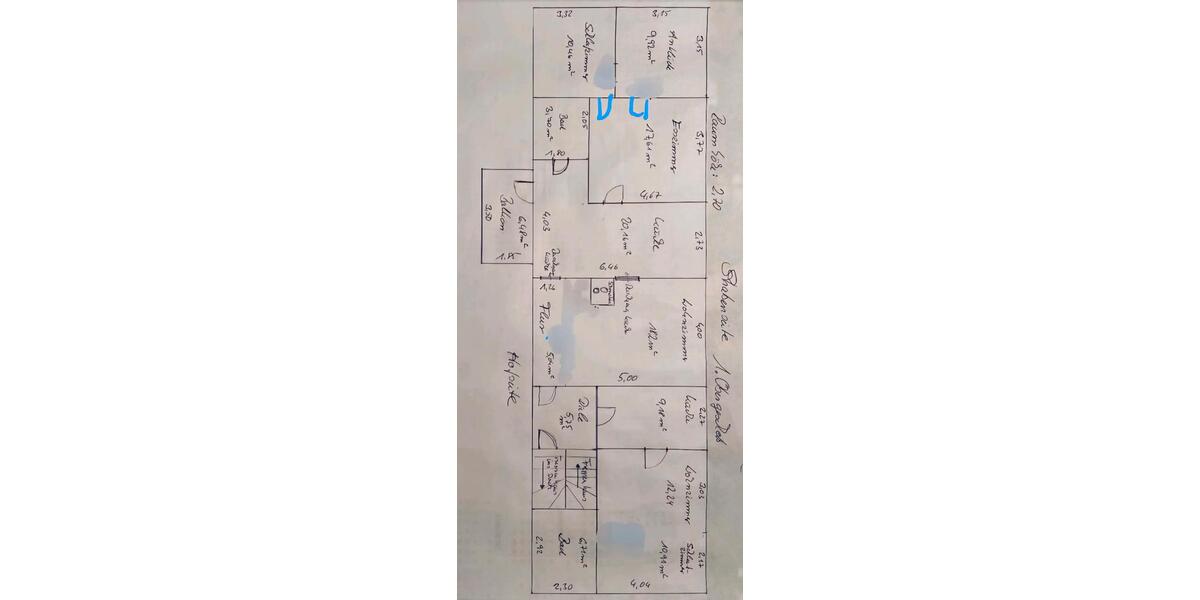 Raumhöhe: 2,70
Straßenseite
1. Obergeschoß
3,32
Schlafzimmer
10,46 m²
3,15
Ankleide
9,92 m²
3,15
Bad
3,70 m²
2,05
1,80
Esszimmer
17,61 m²
3,77
4,67
Balkon
6,48 m²
3,50
4,03
Küche
20,16 m²
2,73
6,46
Flur
5,04 m²
Wohnzimmer
4,00
5,00
Hofseite
Diele
5,75 m²
Küche
2,27
9,18 m²
Treppenhaus
Treppenhaus
Wohnzimmer
3,03
12,24
Schlafzimmer
2,17
10,91 m²
4,04
Bad
6,71 m²
2,92
2,30